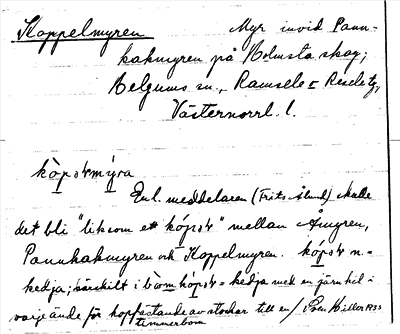 Koppelmyren Myr invid Pann-
kakmyren på Holmsta skog;
Helgums sn., Ramsele o Resele tg,
Västernorrl. l.
Enl. meddelaren (Frits Åslund) skulle
det bli "liksom ett kópәl" mellan Åmyren,
Pannkakmyren och Koppelmyren. kópәl n. =
kedja; särskilt i bòmkópәl = kedja med en järnkil i
varje ände för hopfästande av stockar till en
timmerbom